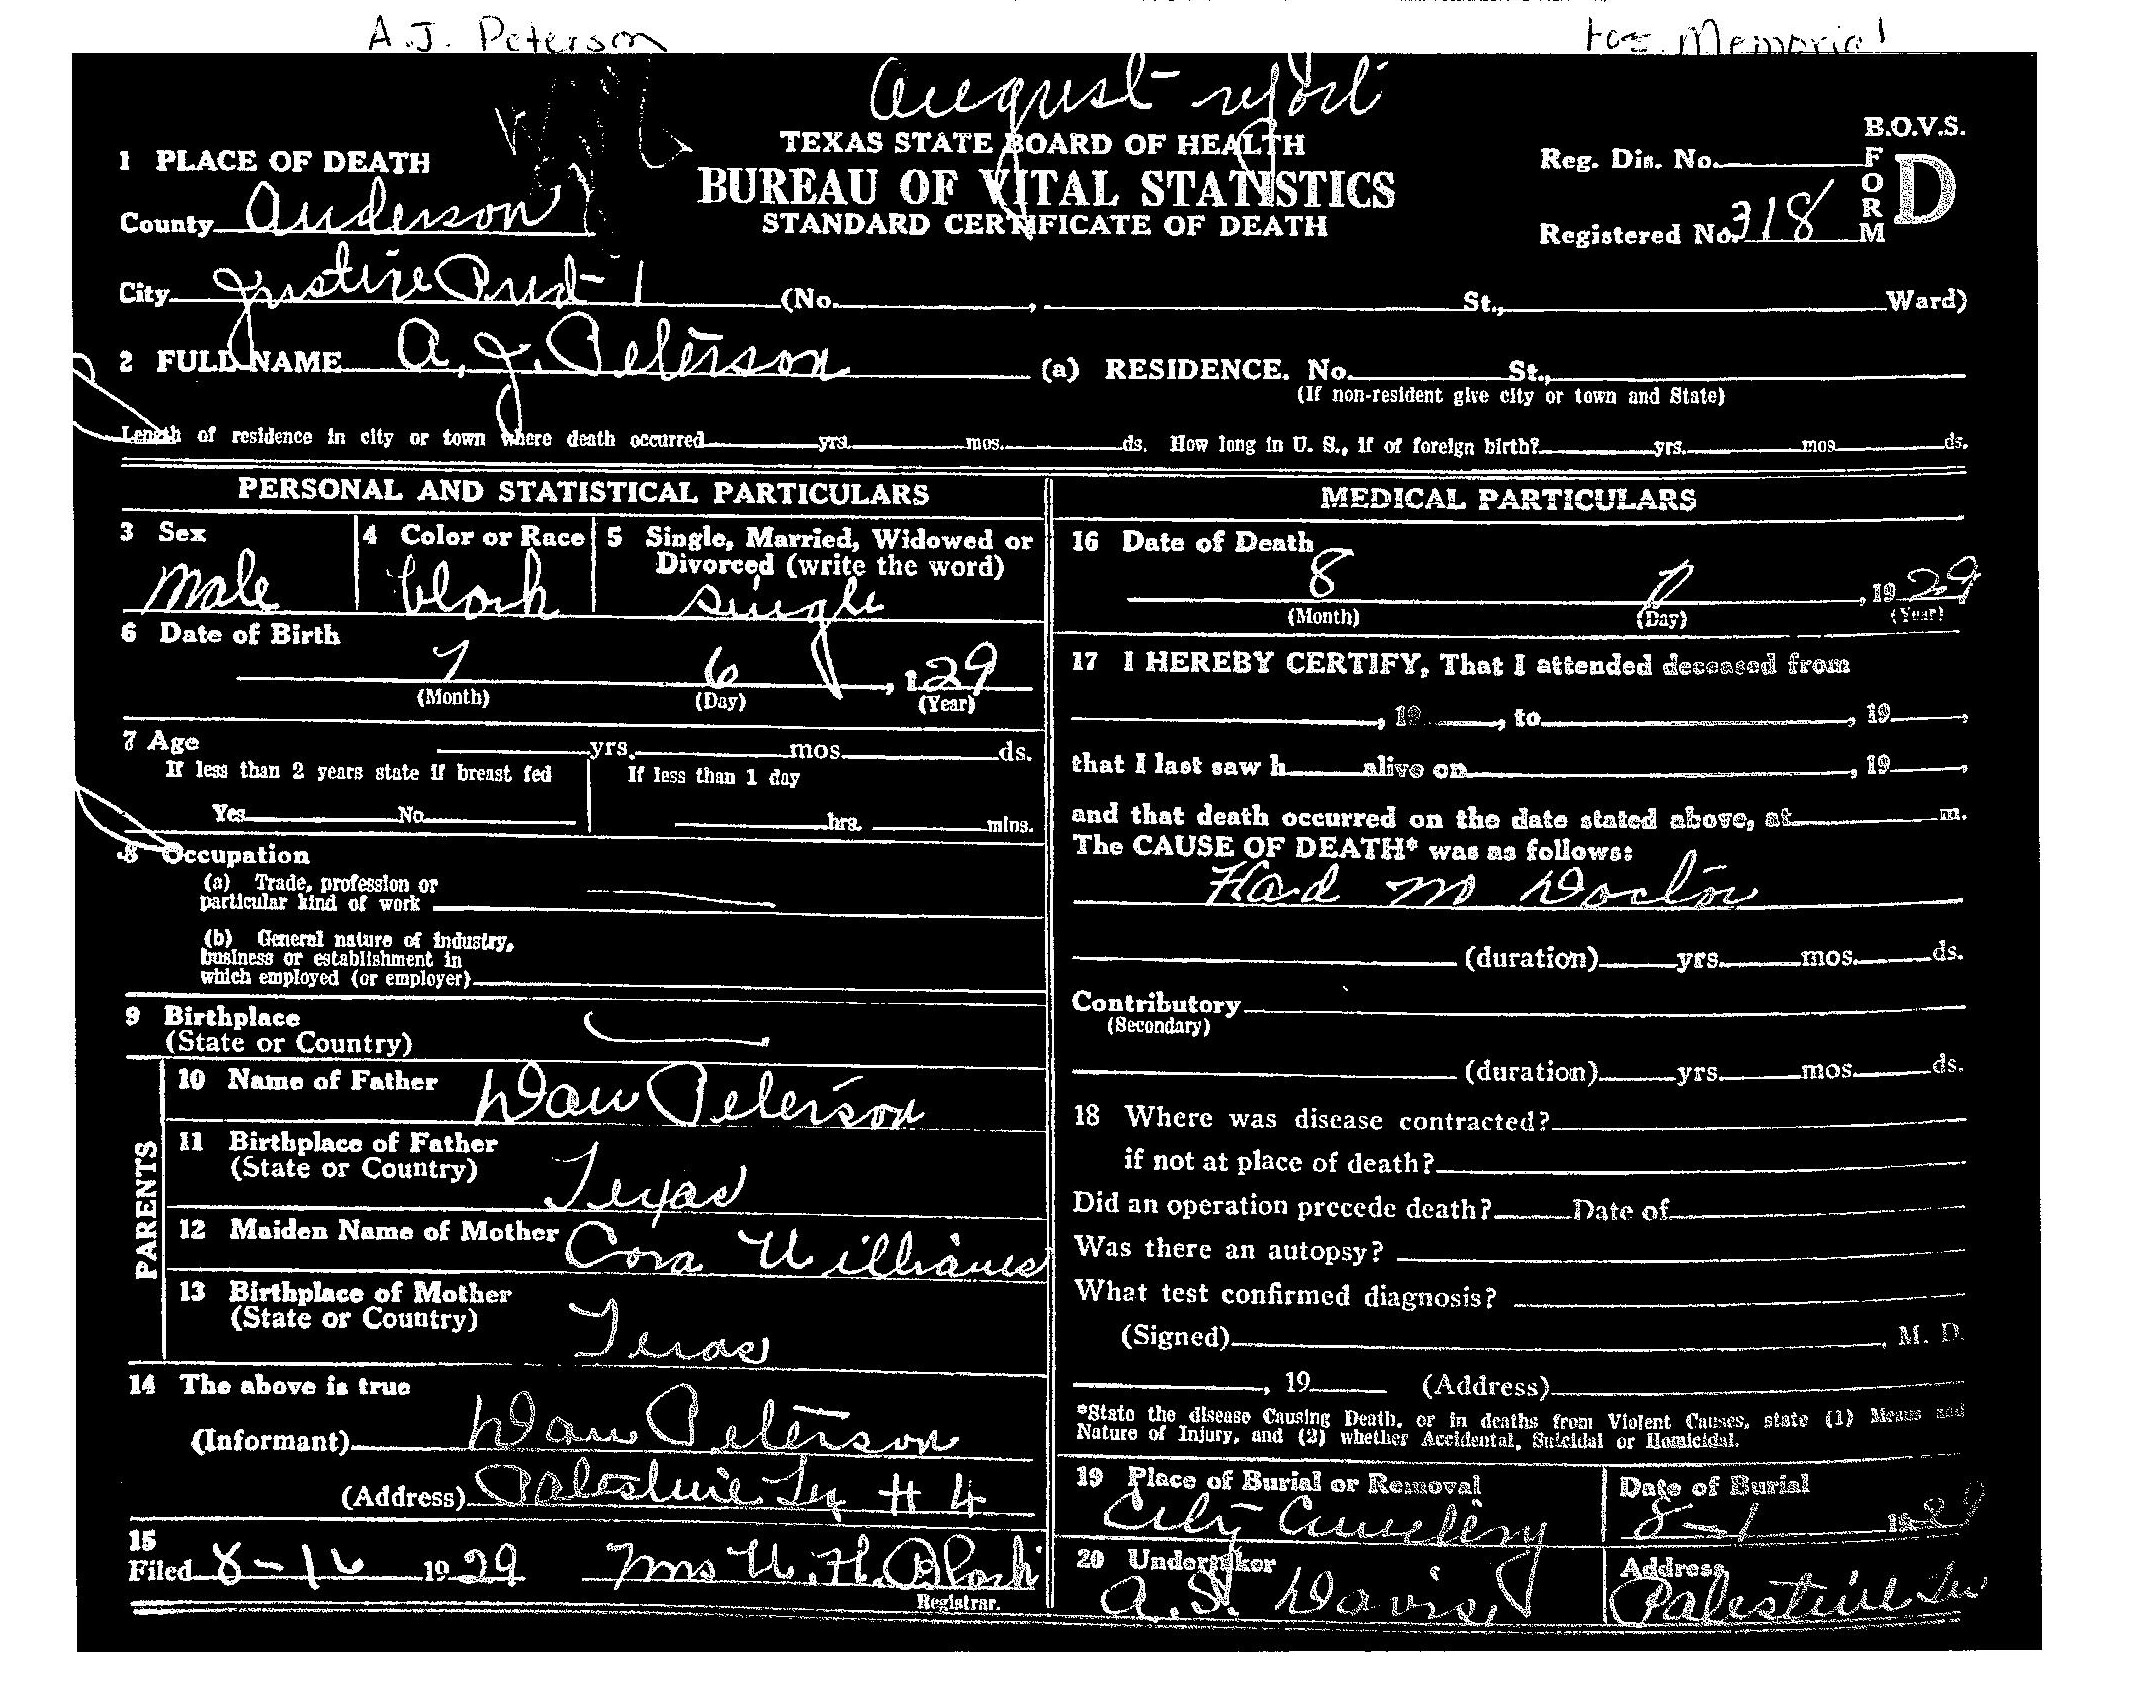 A.J. Peterson
Memorial
August report
TEXAS STATE BOARD OF HEALTH
BUREAU OF VITAL STATISTICS
STANDARD CERTIFICATE OF DEATH
B.O.V.S.
FORM D
Reg. Dis. No.
Registered No. 318
1 PLACE OF DEATH
County Anderson
City Justice Prect 1 (No. , St., Ward)
2 FULL NAME A. J. Peterson (a) RESIDENCE. No. St.,
(If non-resident give city or town and State)
Length of residence in city or town where death occurred yrs. mos. ds. How long in U. S., if of foreign birth? yrs. mos ds.
PERSONAL AND STATISTICAL PARTICULARS
3 Sex
male
4 Color or Race
black
5 Single, Married, Widowed or
Divorced (write the word)
single
6 Date of Birth
7 6 , 1929
(Month) (Day) (Year)
7 Age yrs. mos. ds.
If less than 2 years state if breast fed
Yes No
If less than 1 day
hrs. mins.
8 Occupation
(a) Trade, profession or
particular kind of work
(b) General nature of industry,
business or establishment in
which employed (or employer)
9 Birthplace
(State or Country)
PARENTS
10 Name of Father Dan Peterson
11 Birthplace of Father
(State or Country) Texas
12 Maiden Name of Mother Cora Williams
13 Birthplace of Mother
(State or Country) Texas
14 The above is true
(Informant) Dan Peterson
(Address) Palestine Tex # 4
15
Filed 8-16 1929 Mrs W. H. Black
Registrar.
MEDICAL PARTICULARS
16 Date of Death
8 , 1929
(Month) (Day) (Year)
17 I HEREBY CERTIFY, That I attended deceased from
, 19 , to , 19 ,
that I last saw h alive on , 19 ,
and that death occurred on the date stated above, at m.
The CAUSE OF DEATH* was as follows:
Had no Doctor
(duration) yrs. mos. ds.
Contributory
(Secondary)
(duration) yrs. mos. ds.
18 Where was disease contracted?
if not at place of death?
Did an operation precede death? Date of
Was there an autopsy?
What test confirmed diagnosis?
(Signed) , M. D.
, 19 (Address)
*State the disease Causing Death, or in deaths from Violent Causes, state (1) Means and
Nature of Injury, and (2) whether Accidental, Suicidal or Homicidal.
19 Place of Burial or Removal
City Cemetery
Date of Burial
8-1 1929
20 Undertaker
A. S. Davis
Address
Palestine Tex